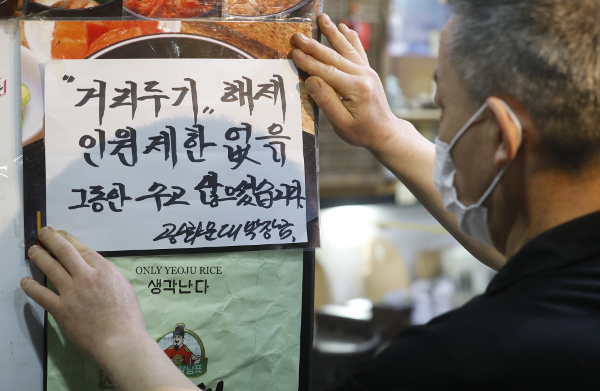 "거리두기" 해제
인원제한 없음
그동안 수고 많으셨습니다.
광화문 대박장금.
ONLY YEOJU RICE
생각난다
님표